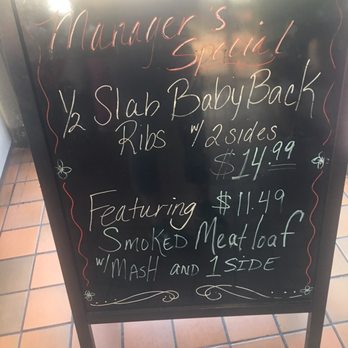 Manager's
Special
1/2 Slab BabyBack
Ribs w/ 2 sides
$14.99
Featuring $11.49
Smoked Meatloaf
w/ Mash and 1 Side